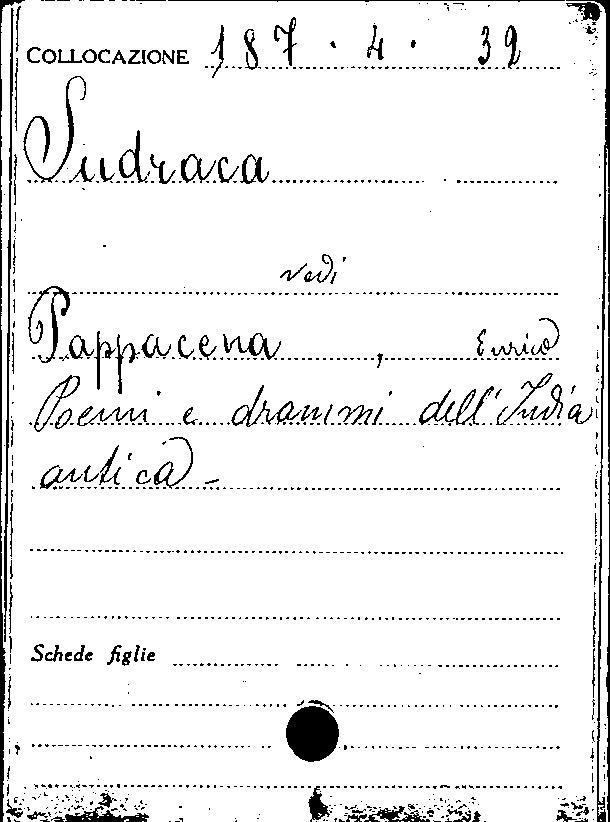 COLLOCAZIONE 187.4.32
Sudraca
vedi
Pappacena, Enrico
Poemi e drammi dell'India
antica -
Schede figlie